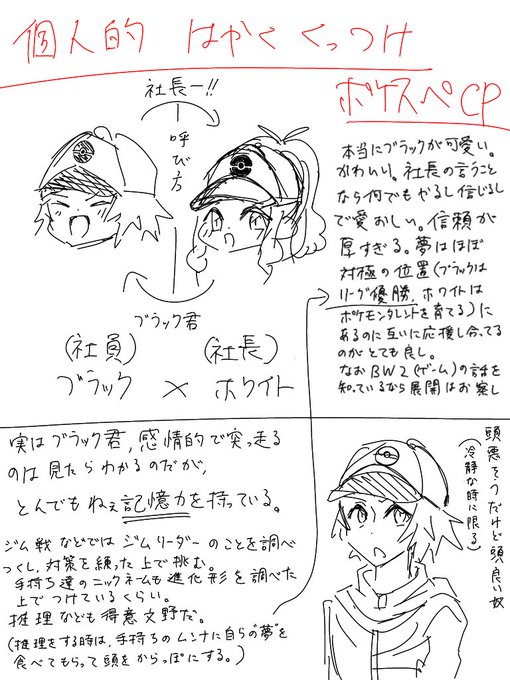 個人的 はやく くっつけ
ポケスペCP
社長ー!!
呼び方
ブラック君
(社員) (社長)
ブラック × ホワイト
本当にブラックが可愛い。
かわいい。社長の言うこと
なら何でもやるし信じるし
で愛おしい。信頼が
厚すぎる。夢はほぼ
対極の位置(ブラックは
リーグ優勝、ホワイトは
ポケモンタレントを育てる)に
あるのに互いに応援し合ってる
のがとても良し。
なおBW2(ゲーム)の話を
知っているなら展開はお察し
実はブラック君,感情的で突っ走る
のは見たらわかるのだが,
とんでもねぇ記憶力を持っている。
ジム戦などではジムリーダーのことを調べ
つくし,対策を練った上で挑む。
手持ち達のニックネームも進化形を調べた
上でつけているくらい。
推理なども得意文野だ。
(推理をする時は,手持ちのムンナに自らの"夢"を
食べてもらって頭をからっぽにする。)
頭悪そうだけど頭良い奴
(冷静な時に限る)